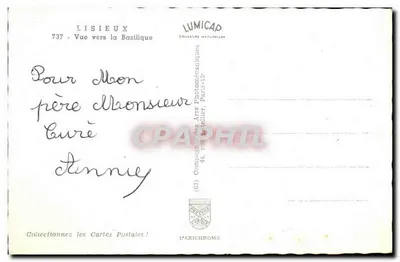 LISIEUX
737 - Vue vers la Basilique
LUMICAP
COULEURS NATURELLES
Pour Mon
père Monsieur
Curé
Annie
CPAPHIL
(C) Compagnie des Arts Photomécaniques
44, rue Letellier, Paris-15e
Collectionnez les Cartes Postales !